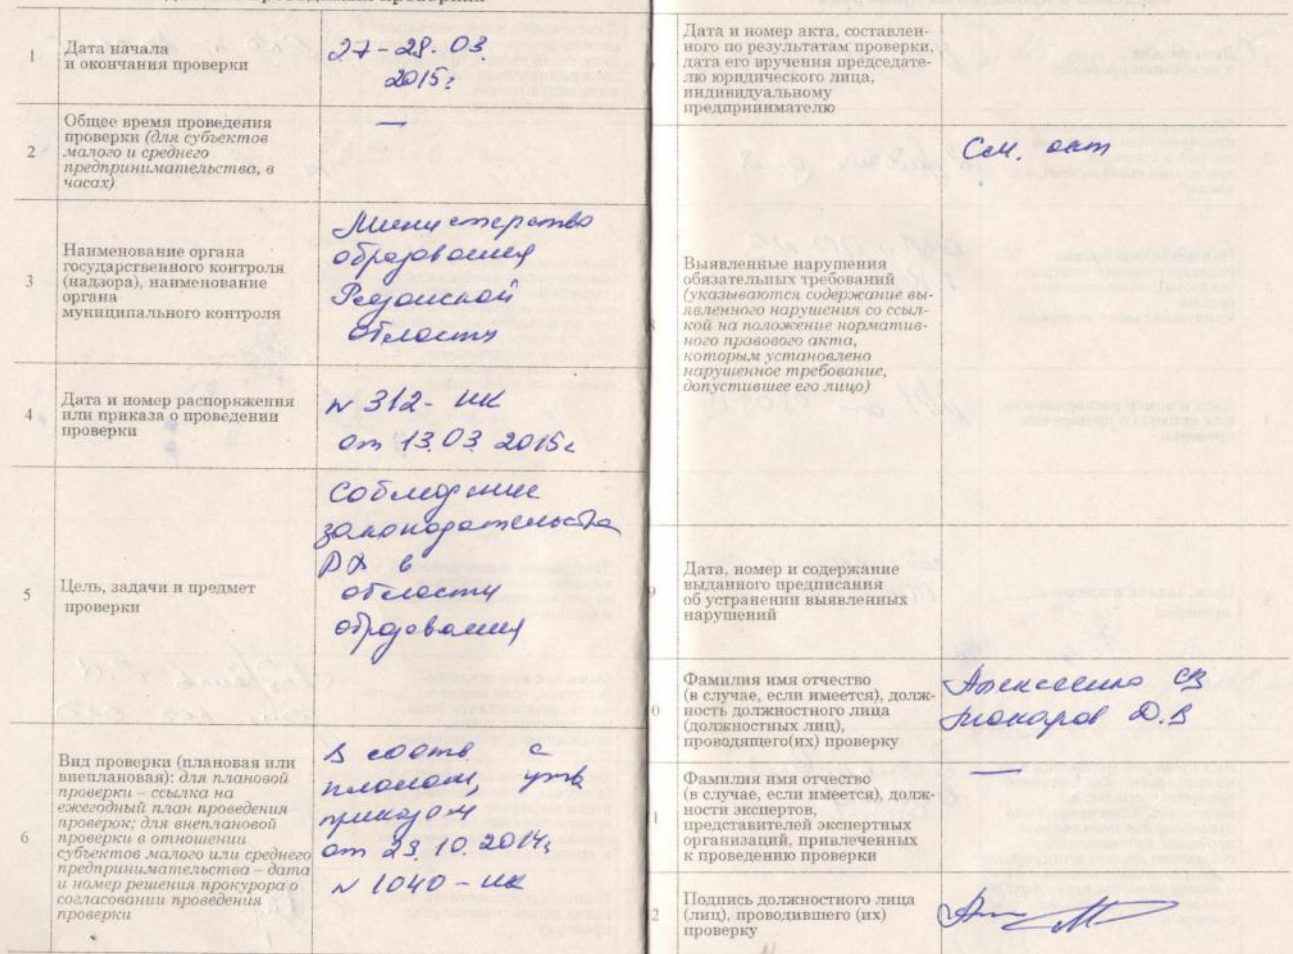 1
Дата начала
и окончания проверки
27-28.03.
2015г
2
Общее время проведения
проверки (для субъектов
малого и среднего
предпринимательства, в
часах)
—
3
Наименование органа
государственного контроля
(надзора), наименование
органа
муниципального контроля
Министерство
образования
Рязанской
области
4
Дата и номер распоряжения
или приказа о проведении
проверки
N 312-ик
от 13.03.2015г
5
Цель, задачи и предмет
проверки
Соблюдение
законодательства
РФ в
области
образования
6
Вид проверки (плановая или
внеплановая): для плановой
проверки – ссылка на
ежегодный план проведения
проверок; для внеплановой
проверки в отношении
субъектов малого или среднего
предпринимательства – дата
и номер решения прокурора о
согласовании проведения
проверки
В соотв с
планом, утв
приказом
от 29.10.2014г
N 1040-ик
Дата и номер акта, составлен-
ного по результатам проверки,
дата его вручения председате-
лю юридического лица,
индивидуальному
предпринимателю
8
Выявленные нарушения
обязательных требований
(указываются содержание вы-
явленного нарушения со ссыл-
кой на положение норматив-
ного правового акта,
которым установлено
нарушенное требование,
допустившее его лицо)
См. акт
9
Дата, номер и содержание
выданного предписания
об устранении выявленных
нарушений
0
Фамилия имя отчество
(в случае, если имеется), долж-
ность должностного лица
(должностных лиц),
проводящего(их) проверку
СВ
Д.В
1
Фамилия имя отчество
(в случае, если имеется), долж-
ности экспертов,
представителей экспертных
организаций, привлеченных
к проведению проверки
—
2
Подпись должностного лица
(лиц), проводившего (их)
проверку